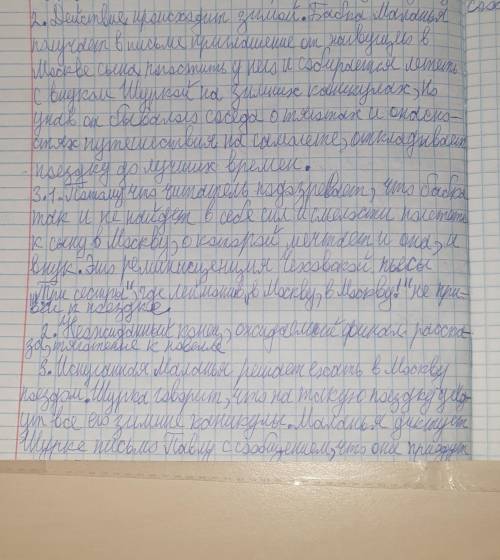 2. Действие происходит зимой. Бабка Маланья
получает в письме приглашение от живущего в
Москве сына погостить у него и собирается лететь
с внуком Шуркой на зимних каникулах, но
узнав от бывалого соседа о тяготах и опасно-
стях путешествия на самолете, откладывает
поездку до лучших времен.
3.1. Потому что читатель подозревает, что бабка
так и не найдет в себе сил и смелости полететь
к сыну в Москву, о которой мечтает и она, и
внук. Это реминисценция чеховской пьесы
"Три сестры", где лейтмотив "в Москву, в Москву!" не при-
вёл к поездке.
2. Неожиданный конец, ожидаемый финал расска-
за, тяготение к новелле
3. Испуганная Маланья решает ехать в Москву
поездом. Шурка говорит, что на такую поездку уйд
ут все его зимние каникулы. Маланья диктует
Шурке письмо Павлу с сообщением, что они приедут